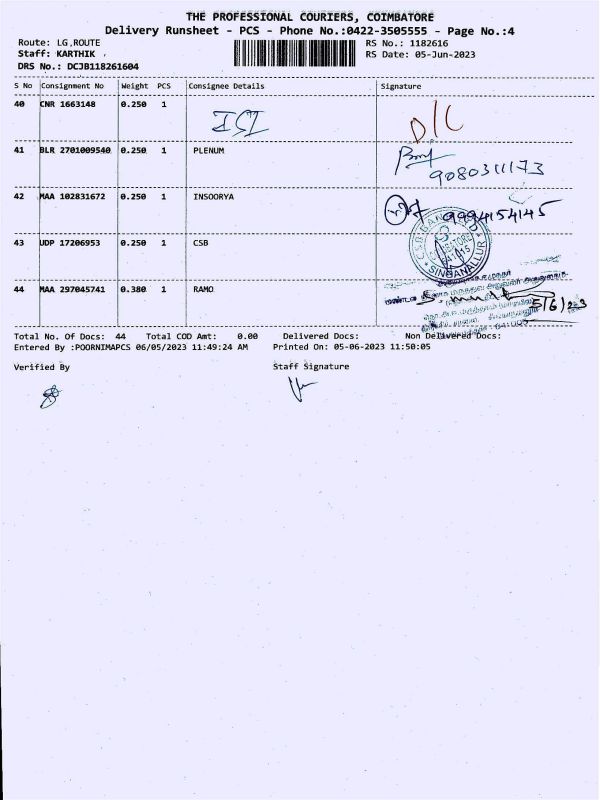 THE PROFESSIONAL COURIERS, COIMBATORE
Delivery Runsheet - PCS - Phone No.:0422-3505555 - Page No.:4
Route: LG,ROUTE RS No.: 1182616
Staff: KARTHIK RS Date: 05-Jun-2023
DRS No.: DCJB118261604
S No Consignment No Weight PCS Consignee Details Signature
40 CNR 1663148 0.250 1 D/L
41 BLR 2701009540 0.250 1 PLENUM
9080311173
42 MAA 102831672 0.250 1 INSOORYA
9994154145
43 UDP 17206953 0.250 1 CSB
SINGANALLUR
44 MAA 297045741 0.380 1 RAMO
5/6/23
Total No. Of Docs: 44 Total COD Amt: 0.00 Delivered Docs: Non Delivered Docs:
Entered By :POORNIMAPCS 06/05/2023 11:49:24 AM Printed On: 05-06-2023 11:50:05
Verified By Staff Signature